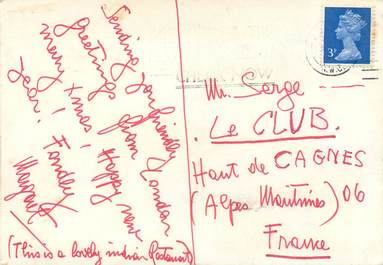 Sending you friendly
greetings from London
merry Xmas! Happy new
year! Fondly
(This is a lovely indian Restaurant)
3P
Mr. Serge
Le CLUB.
Haut de CAGNES
(Alpes Maritimes) 06
France